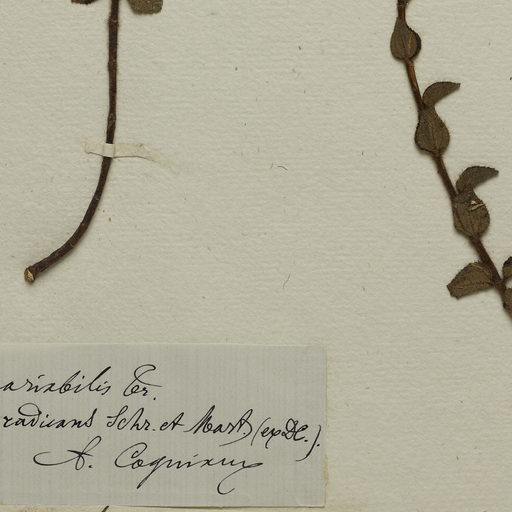 ariabilis Tr.
radicans Schr. et Mart. (ex DC.).
A. Cogniaux